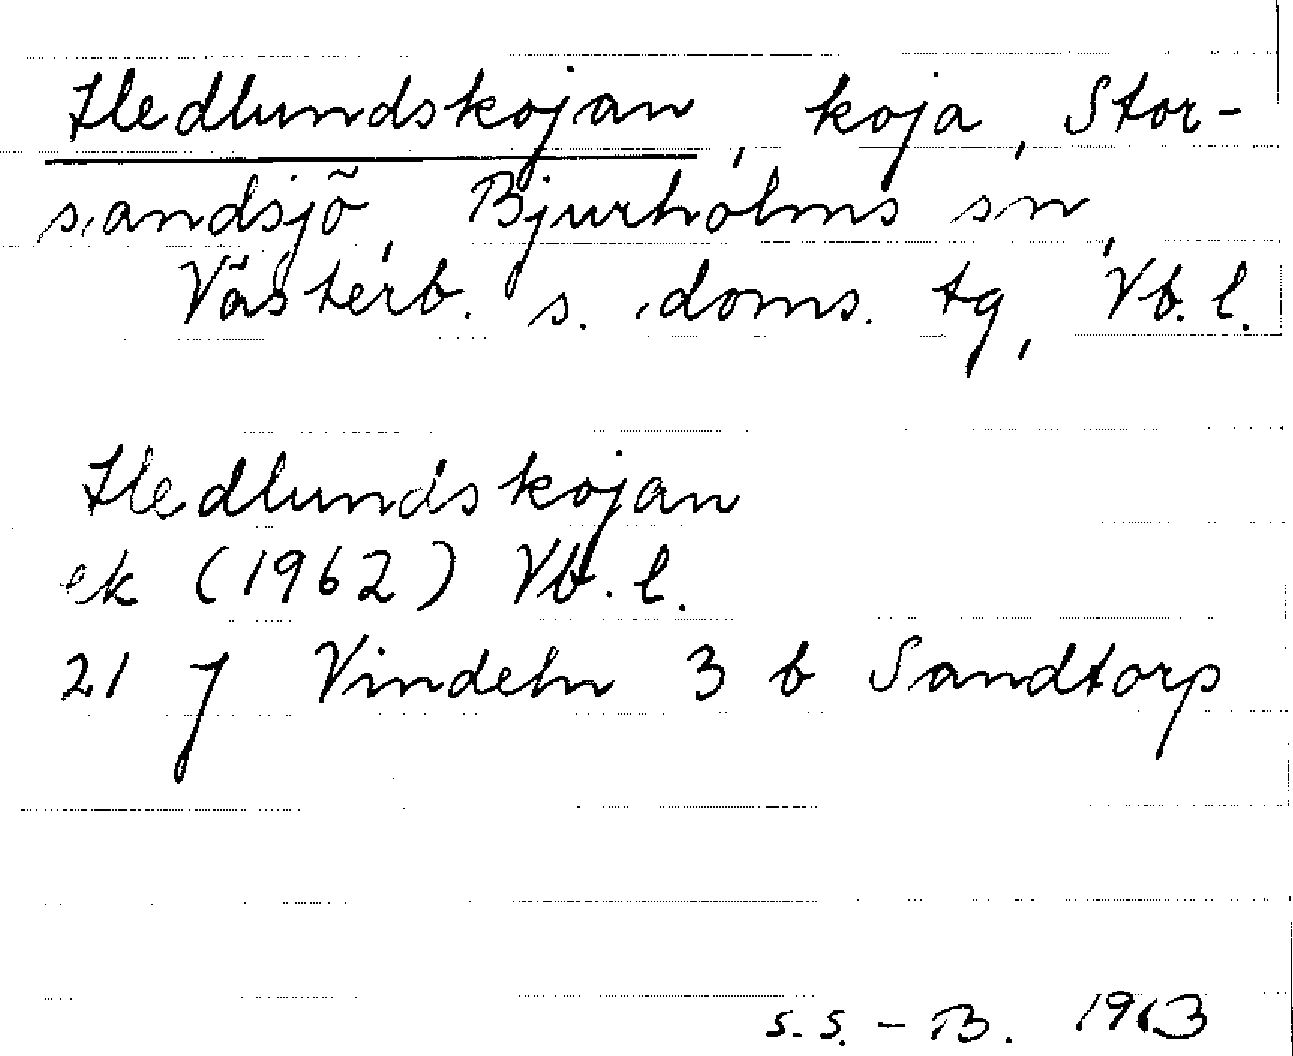 Hedlundskojan, koja, Stor-
sandsjö, Bjurholms sn,
Västerb. s. doms. tg, Vb. l.
Hedlundskojan
ek (1962) Vb. l.
21 J Vindeln 3 b Sandtorp
S.S. - B. 1963